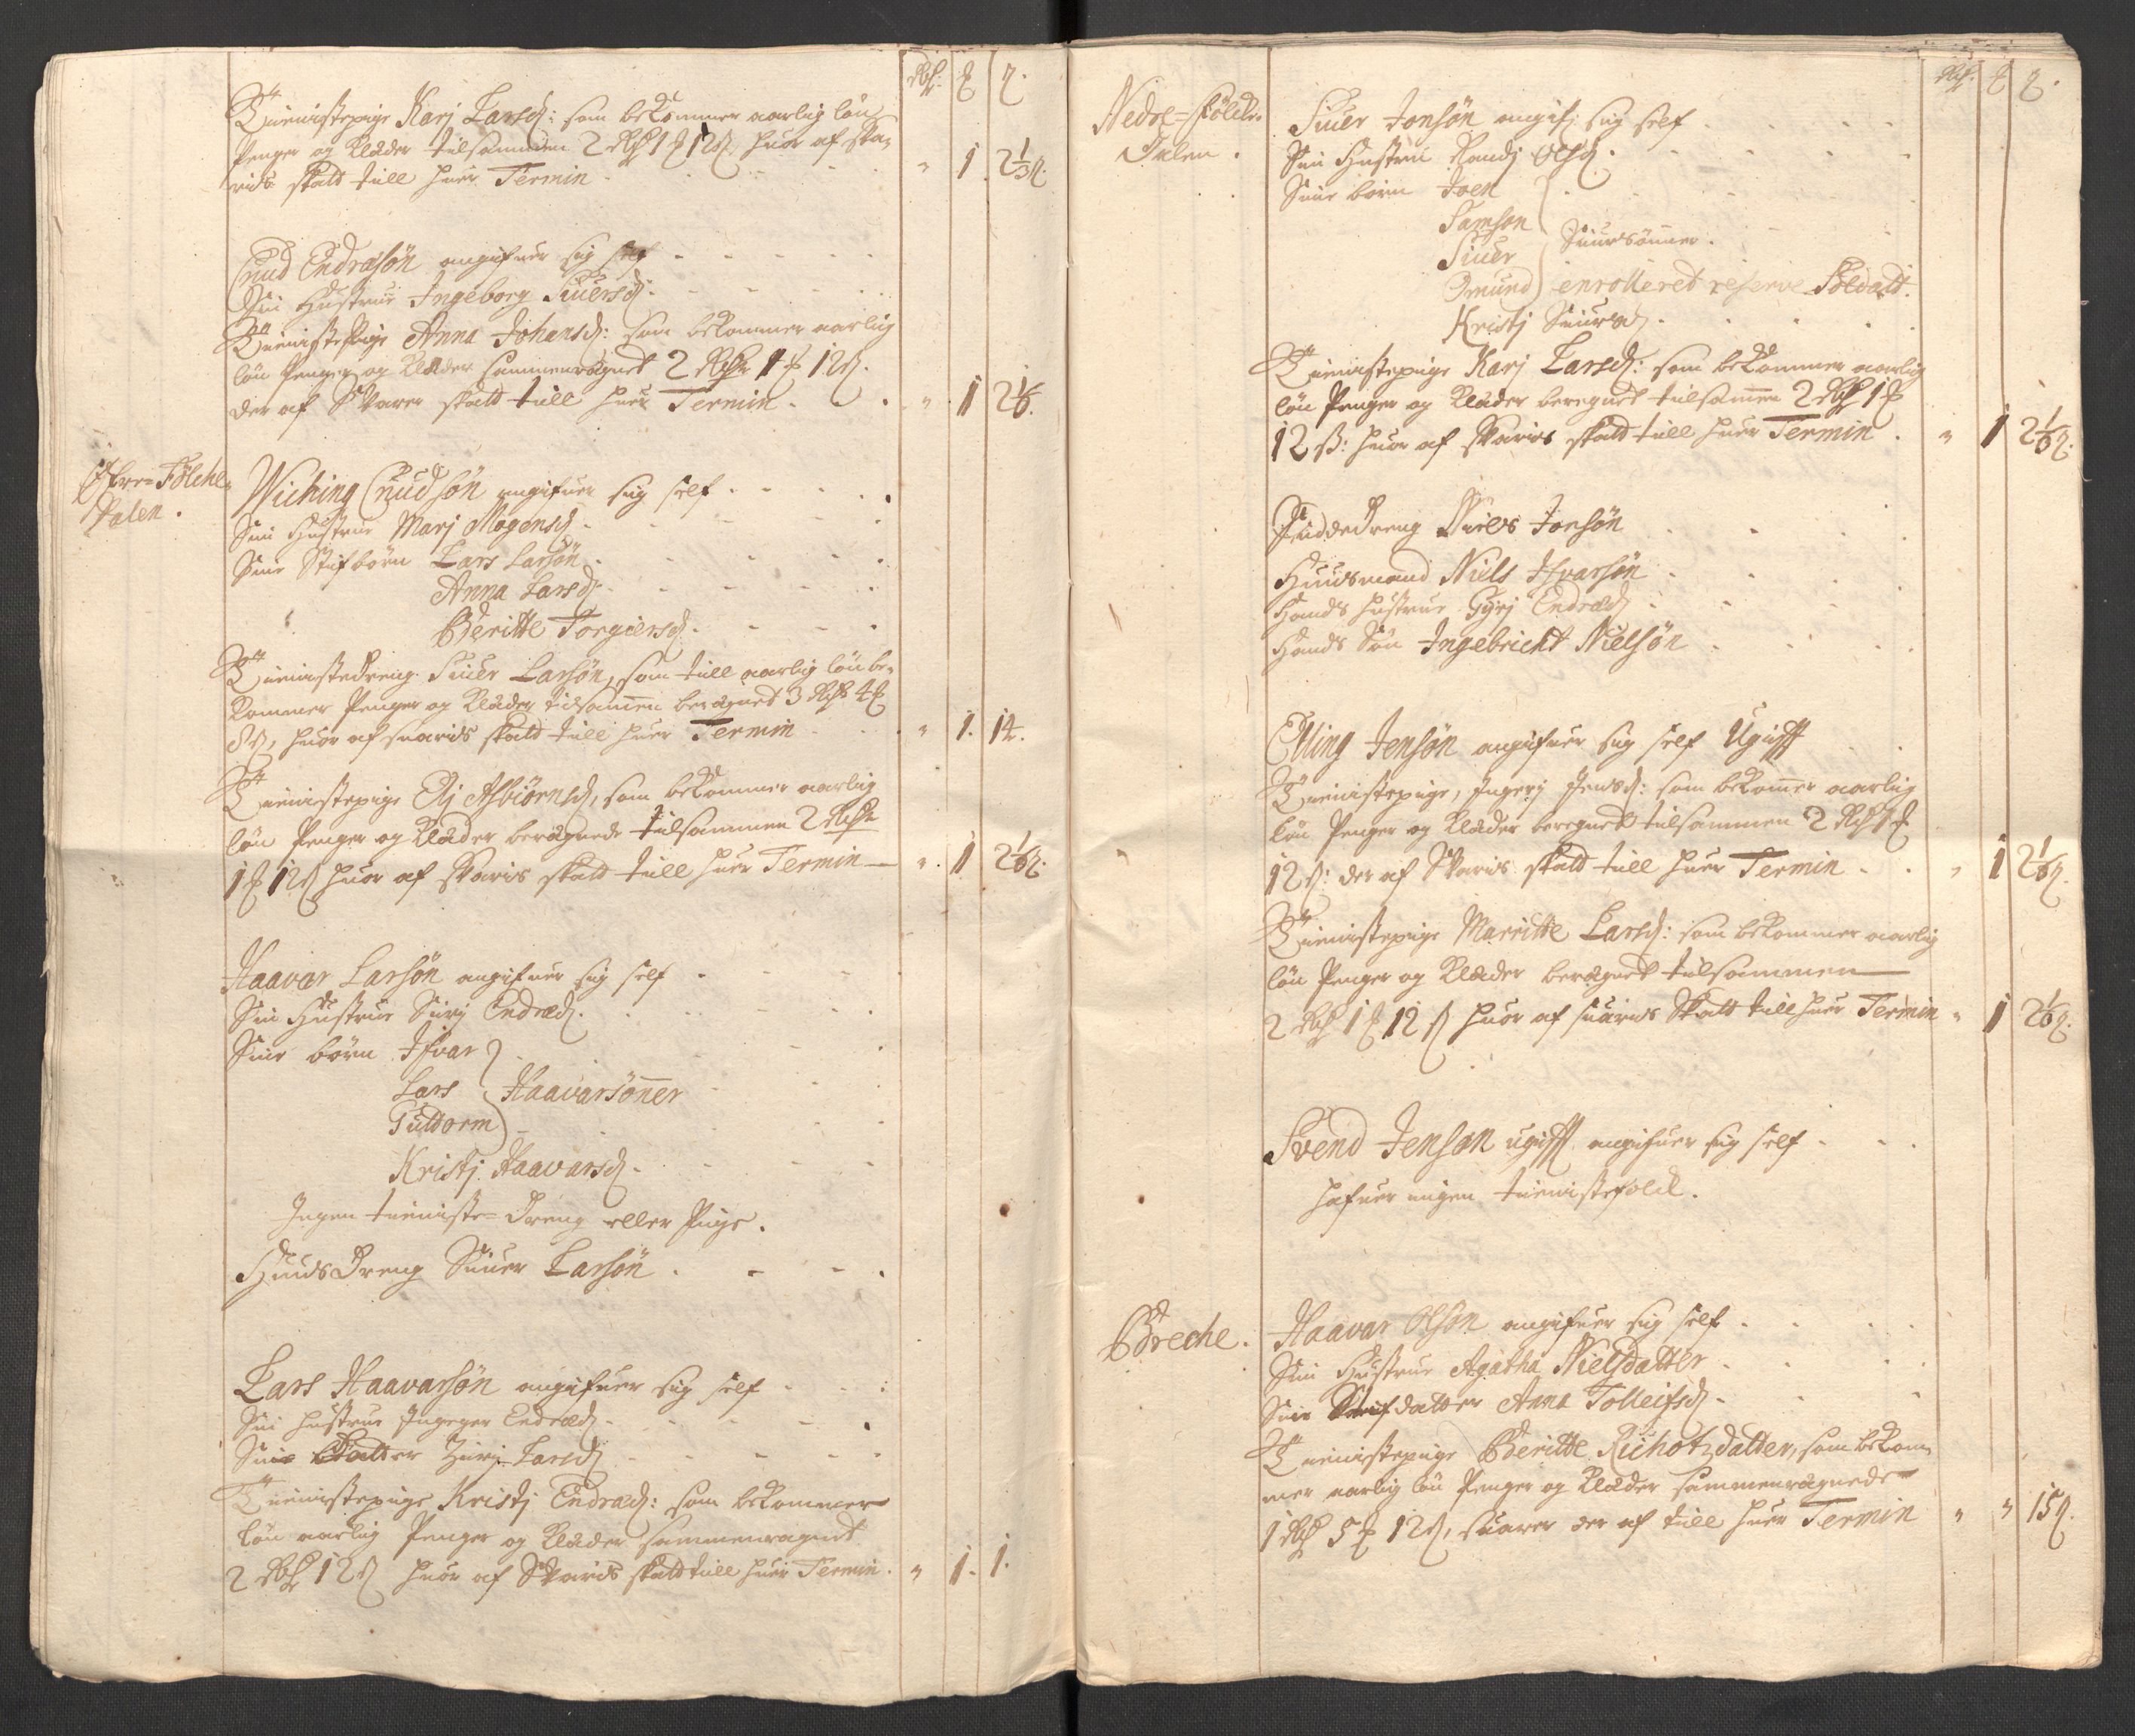 Rdr: ℔ ß.
Tienistepige Karj Larsd: som bekommer aarlig løn
Penger og Klæder tilsammen 2 Rdr 1 ℔ 12 ß, huor af sva-
ris skatt till huer Termin " 1 2⅓ ß.
Cnud Endresøn angifuer sig self
Sin Hustrue Ingeborg Siuersd:
Tienistepige Anna Johansd: som bekommer aarlig
løn Penger og Klæder sammenregnet 2 Rdr 1 ℔ 12 ß.
der af Svarer skatt till huer Termin " 1 2⅙.
Øfre=Følche
Dalen.
Wiching Cnudsøn angifuer sig self
Sin Hustrue Marj Mogensd
Sine Stifbørn Lars Larsøn
Anna Larsd
Beritte Torgiersd
Tienistedreng Siuer Larsøn, som till aarlig løn be-
kommer Penger og Klæder tilsamen beregnet 3 Rdr 4 ℔
8 ß, huor af suaris skatt till huer Termin " 1. 14.
Tienistepige Elj Asbiørnsd, som bekommer aarlig
løn Penger og Klæder beregnede tilsammen 2 Rdr
1 ℔ 12 ß huor af svaris skatt till huer Termin " 1 2⅙ ß.
Haavar Larsøn angifuer sig self
Sin Hustrue Sirj Endred.
Sine børn Ifvar
Lars Haavarsøner
Guttorm
Kristj Haavarsd
Ingen tieniste=Dreng eller Pige.
HuusDreng Siuer Larsøn
Lars Haavarsøn angifuer sig self
Sin hustrue Ingeger Endred
Sin Datter Zirj Larsd
Tienistepige Kristj Endred: som bekommer
løn aarlig Penger og Klæder sammenregnet
2 Rdr 12 ß huor af Svaris skatt till huer Termin. " 1. 1.
Rdr. ℔ ß.
Nedre=Følche
Dalen.
Siuer Jonsøn angif: sig self
Sin Hustrue Randj Olsd.
Sine børn Joen
Samson
Siuer Siuersønner.
Omund enrolleret reserve Soldatt.
Kristj Siuersd
Tienistepige Karj Larsd: som bekommer aarlig
løn Penger og Klæder beregnet tilsamen 2 Rdr 1 ℔
12 ß: huor af svaris skatt till huer Termin " 1 2⅙ ß.
Dreng Siurs Jonsøn
Huusmand Niels Ifvarsøn
Hands hustrue Gyrj Endred
Hands Søn Ingebricht Nielsøn
Elling Jensøn angifuer sig self Ugift
Tienistepige, Ingerj Jensd: som bekomer aarlig
løn Penger og Klæder beregnet tilsammen 2 Rdr 1 ℔
12 ß: der af Svaris skatt till huer Termin " 1 2⅙ ß.
Tienistepige Marritte Larsd: som bekommer aarlig
løn Penger og Klæder beregnet tilsammen
2 Rdr 1 ℔ 12 ß huor af suaris Skatt till huer Termin " 1 2⅙ ß.
Svend Jensøn ugift angifuer sig self
hafuer ingen tienistefolck.
Breche.
Haavar Olsøn angifuer sig self
Sin Hustrue Agatha Nielsdatter
Sin Stifdatter Anna Tolleifsd
Tienistepige Beritte Richotzdatter, som bekom-
mer aarlig løn Penger og Klæder sammenregnede
1 Rdr 5 ℔ 12 ß, suarer der af till huer Termin " " 15 ß.